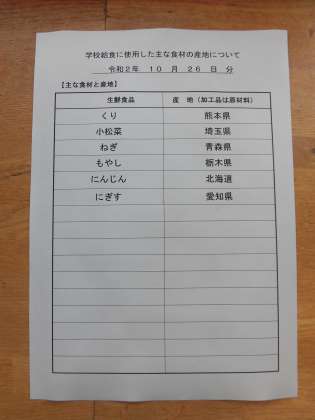 学校給食に使用した主な食材の産地について
令和2年 10 月 26 日 分
【主な食材と産地】
生鮮食品 産 地（加工品は原材料）
くり 熊本県
小松菜 埼玉県
ねぎ 青森県
もやし 栃木県
にんじん 北海道
にぎす 愛知県